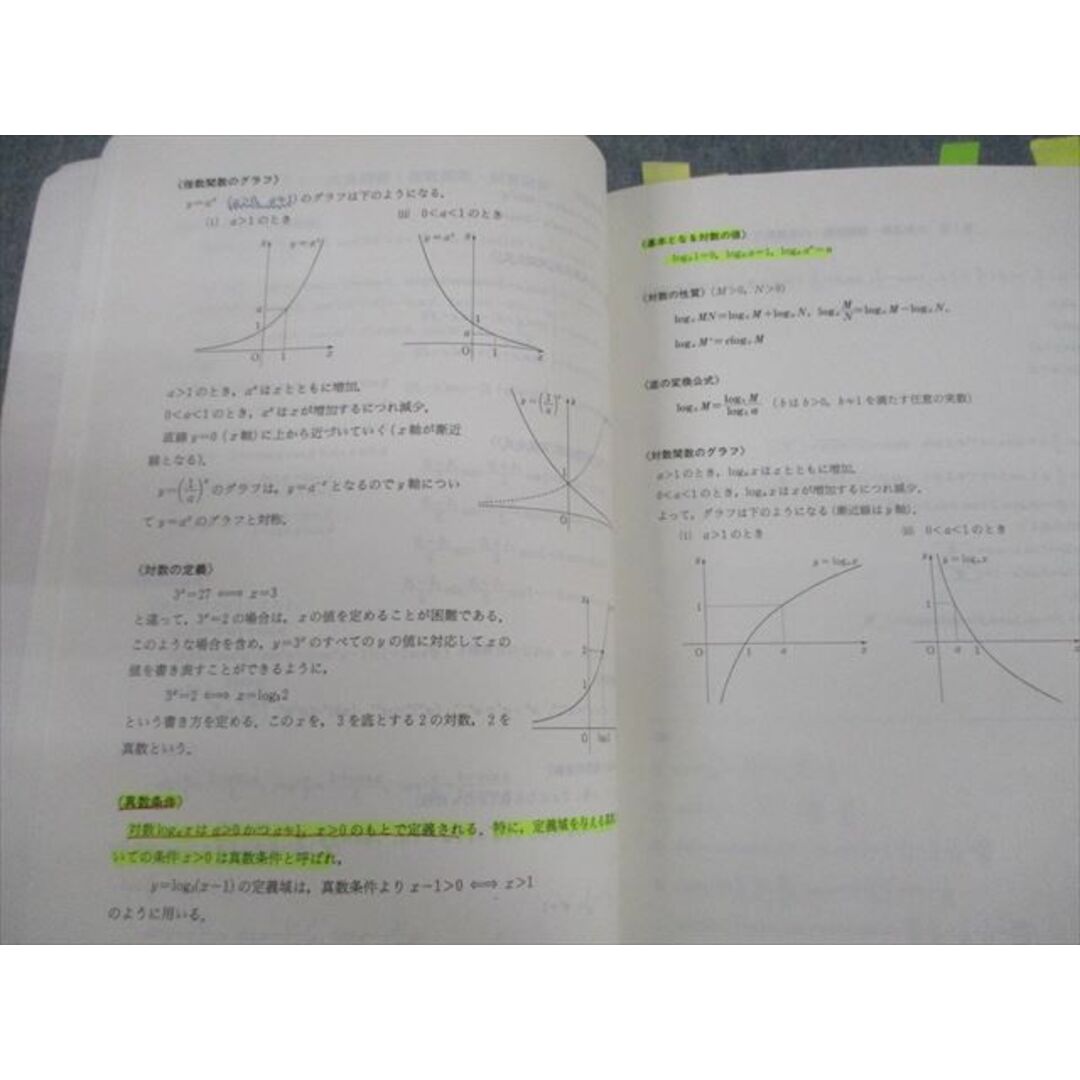 〈指数関数のグラフ〉
y=aˣ (a>0, a≠1)のグラフは下のようになる。
(i) a>1のとき (ii) 0<a<1のとき
y=aˣ
a
1
O 1 x
y=aˣ y
1
a
O 1 x
a>1のとき，aˣはxとともに増加。
0<a<1のとき，aˣはxが増加するにつれ減少。
直線y=0 (x軸)に上から近づいていく(x軸が漸近
線となる)。
y=(1/a)ˣのグラフは，y=a⁻ˣとなるのでy軸につい
てy=aˣのグラフと対称。
y=(1/a)ˣ
1
O
〈対数の定義〉
3ˣ=27 ⟺ x=3
と違って，3ˣ=2の場合は，xの値を定めることが困難である。
このような場合を含め，y=3ˣのすべてのyの値に対応してxの
値を書き表すことができるように，
3ˣ=2 ⟺ x=log₃2
という書き方を定める。このxを，3を底とする2の対数，2を
真数という。
2
1
O
〈真数条件〉
対数logₐxはa>0かつa≠1，x>0のもとで定義される。特に，定義域を与える
いての条件x>0は真数条件と呼ばれ，
y=log₂(x−1)の定義域は，真数条件より x−1>0 ⟺ x>1
のように用いる。
〈基本となる対数の値〉
logₐ1=0, logₐa=1, logₐaⁿ=n
〈対数の性質〉(M>0, N>0)
logₐMN=logₐM+logₐN, logₐM/N=logₐM−logₐN,
logₐMʳ=rlogₐM
〈底の変換公式〉
logₐM=log_bM/log_ba (bはb>0, b≠1を満たす任意の実数)
〈対数関数のグラフ〉
a>1のとき，logₐxはxとともに増加。
0<a<1のとき，logₐxはxが増加するにつれ減少。
よって，グラフは下のようになる(漸近線はy軸)。
(i) a>1のとき (ii) 0<a<1のとき
y y=logₐx
1
O 1 a x
y y=logₐx
1
O a 1 x